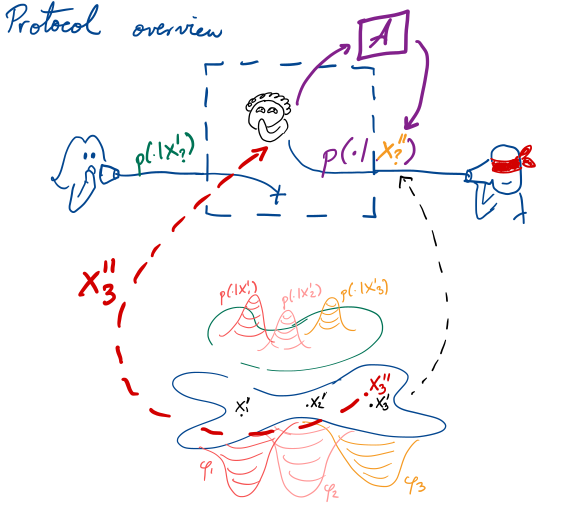 Protocol overview
A
p(·|X'?)
p(·|X''?)
X''3
p(·|X'1)
p(·|X'2)
p(·|X'3)
X''3
X'1
X'2
X'3
φ1
φ2
φ3